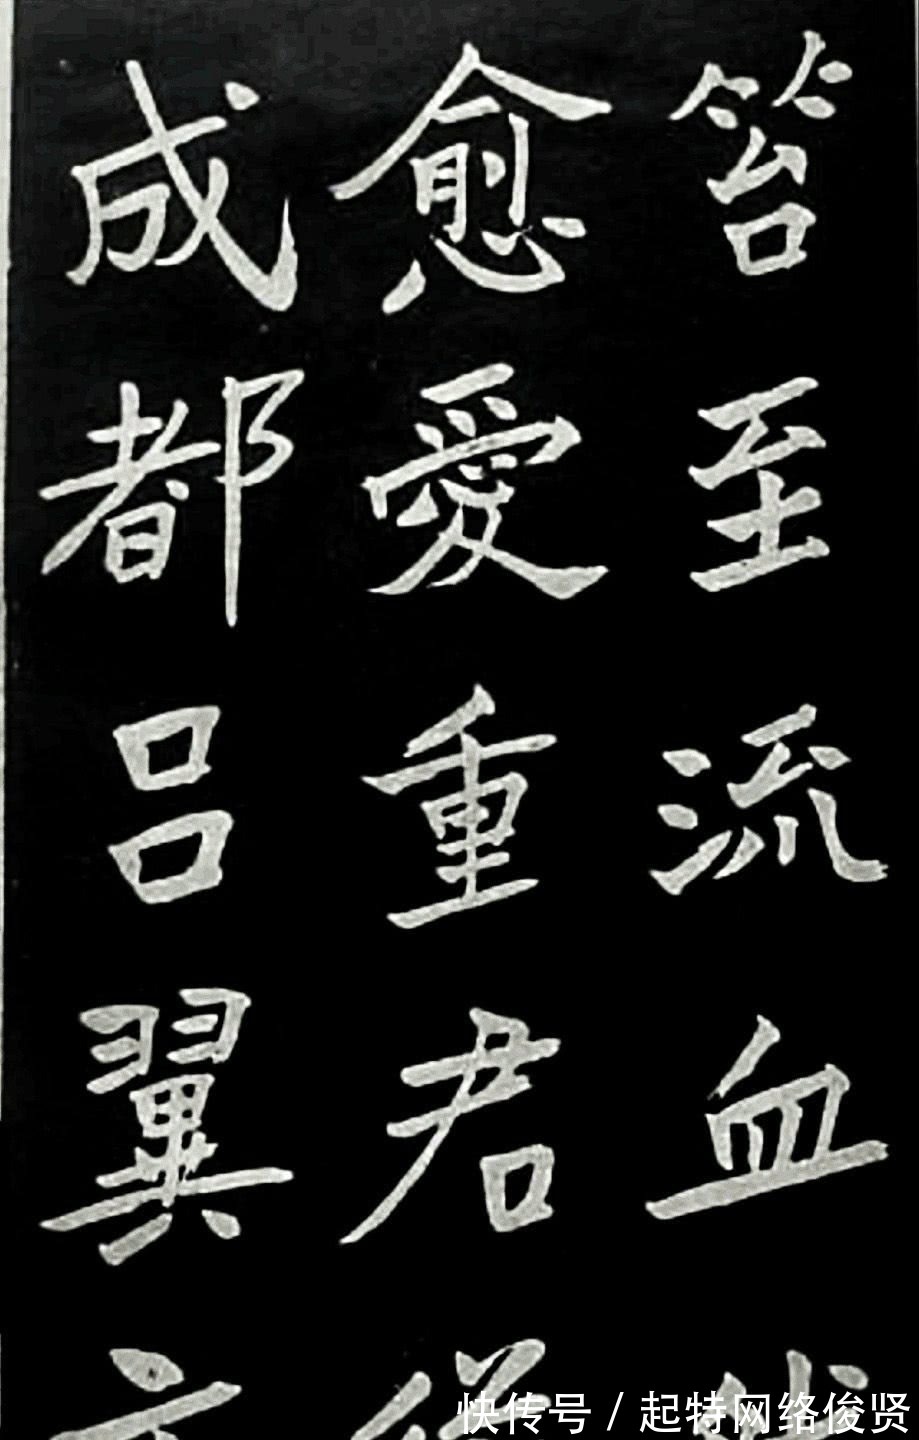 笞至流血
愈愛重君
成都吕翼
快传号 / 起特网络俊贤